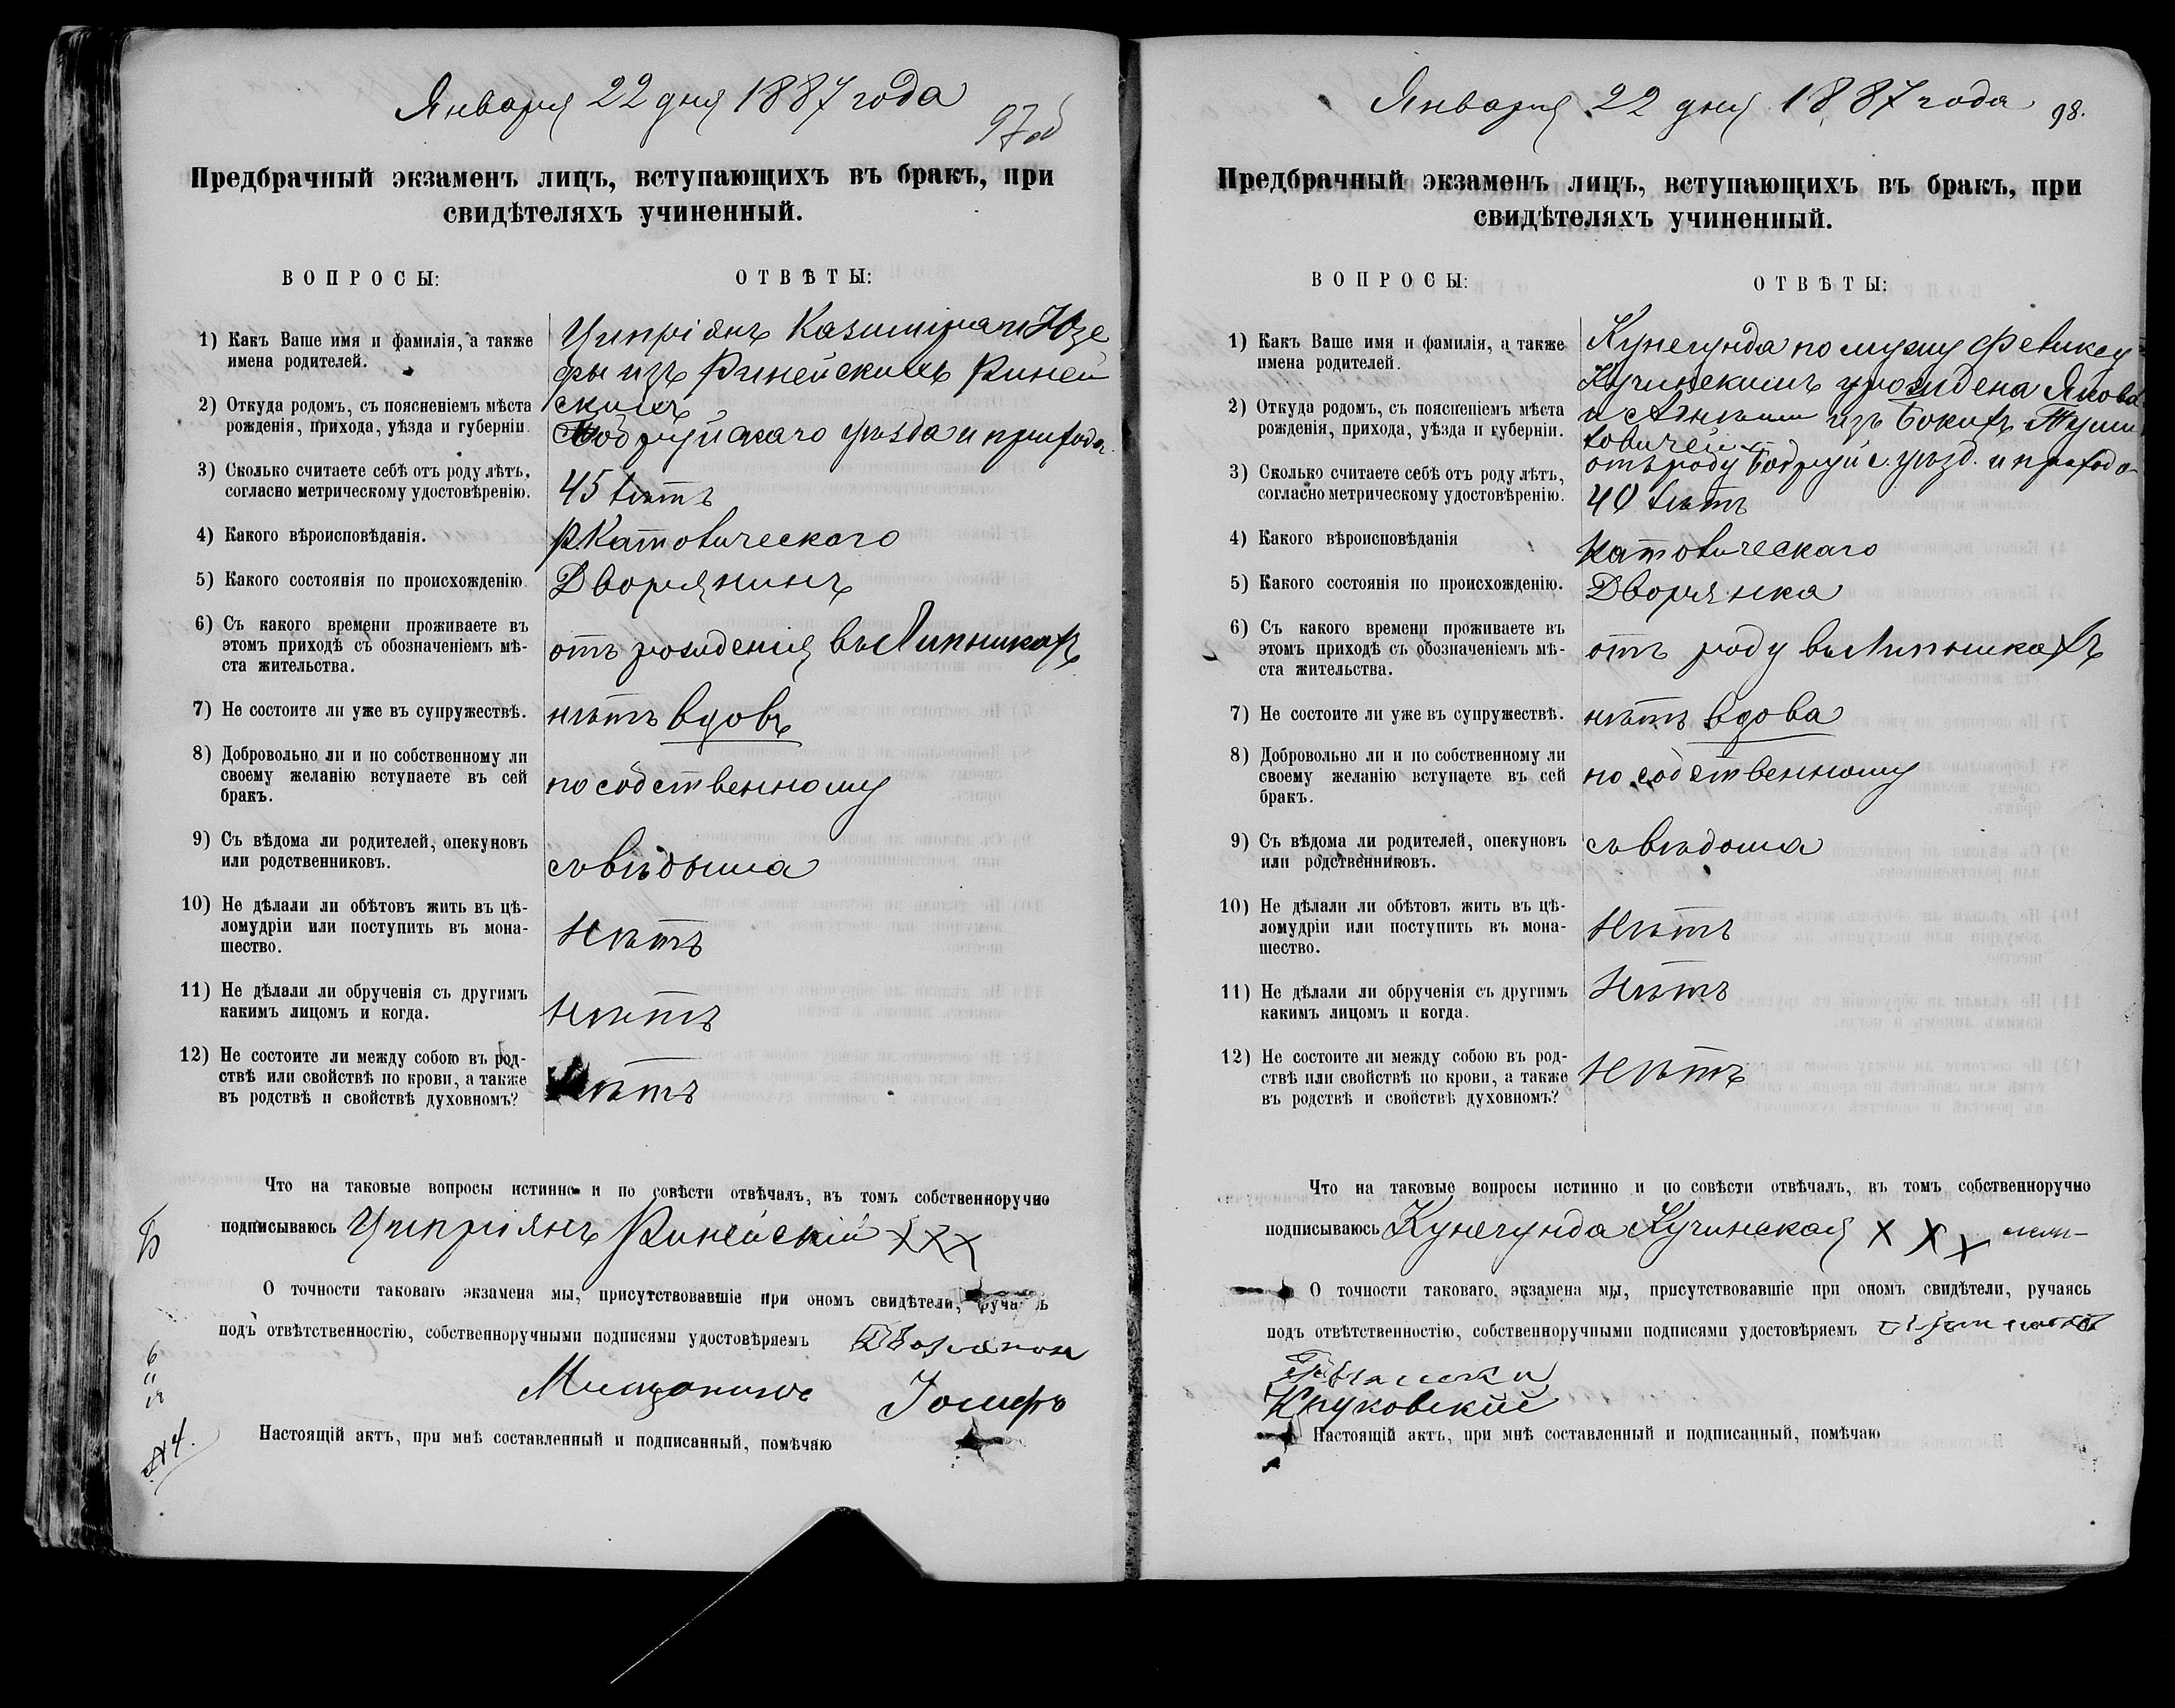 Января 22 дня 1887 года
97об
Предбрачный экзаменъ лицъ, вступающихъ въ бракъ, при
свидѣтеляхъ учиненный.
ВОПРОСЫ:
ОТВѢТЫ:
1) Какъ Ваше имя и фамилія, а также
имена родителей.
Ципріянъ Казимира и Юзе
фы изъ Ринейскихъ Риней
скихъ
2) Откуда родомъ, съ поясненіемъ мѣста
рожденія, прихода, уѣзда и губерніи.
Бобруйскаго уѣзда и прихода
3) Сколько считаете себѣ отъ роду лѣтъ,
согласно метрическому удостовѣренію.
45 лѣтъ
4) Какого вѣроисповѣданія.
РКатолическаго
5) Какого состоянія по происхожденію.
Дворянинъ
6) Съ какого времени проживаете въ
этомъ приходѣ съ обозначеніемъ мѣ-
ста жительства.
отъ рожденія въ Липникахъ
7) Не состоите ли уже въ супружествѣ.
нѣтъ вдовъ
8) Добровольно ли и по собственному ли
своему желанію вступаете въ сей
бракъ.
по собственному
9) Съ вѣдома ли родителей, опекуновъ
или родственниковъ.
съ вѣдома
10) Не дѣлали ли обѣтовъ жить въ цѣ-
ломудріи или поступить въ мона-
шество.
Нѣтъ
11) Не дѣлали ли обрученія съ другимъ
какимъ лицомъ и когда.
Нѣтъ
12) Не состоите ли между собою въ род-
ствѣ или свойствѣ по крови, а также
въ родствѣ и свойствѣ духовномъ?
Нѣтъ
Что на таковые вопросы истинно и по совѣсти отвѣчалъ, въ томъ собственноручно
подписываюсь Ципріянъ Ринейскій XXX
О точности таковаго экзамена мы, присутствовавшіе при ономъ свидѣтели, ручаясь
подъ отвѣтственностію, собственноручными подписями удостовѣряемъ
Іосифъ
Настоящій актъ, при мнѣ составленный и подписанный, помѣчаю
№ 4.
Января 22 дня 1887 года
98.
Предбрачный экзаменъ лицъ, вступающихъ въ бракъ, при
свидѣтеляхъ учиненный.
ВОПРОСЫ:
ОТВѢТЫ:
1) Какъ Ваше имя и фамилія, а также
имена родителей.
Кунегунда по мужу Феликсу
Кучинскимъ урождена Якова
и изъ
2) Откуда родомъ, съ поясненіемъ мѣста
рожденія, прихода, уѣзда и губерніи.
отъ роду Бобруйс. уѣзд. и прихода
3) Сколько считаете себѣ отъ роду лѣтъ,
согласно метрическому удостовѣренію.
40 лѣтъ
4) Какого вѣроисповѣданія
Католическаго
5) Какого состоянія по происхожденію.
Дворянка
6) Съ какого времени проживаете въ
этомъ приходѣ съ обозначеніемъ мѣ-
ста жительства.
отъ роду въ Липникахъ
7) Не состоите ли уже въ супружествѣ.
нѣтъ вдова
8) Добровольно ли и по собственному ли
своему желанію вступаете въ сей
бракъ.
по собственному
9) Съ вѣдома ли родителей, опекуновъ
или родственниковъ.
съ вѣдома
10) Не дѣлали ли обѣтовъ жить въ цѣ-
ломудріи или поступить въ мона-
шество.
Нѣтъ
11) Не дѣлали ли обрученія съ другимъ
какимъ лицомъ и когда.
Нѣтъ
12) Не состоите ли между собою въ род-
ствѣ или свойствѣ по крови, а также
въ родствѣ и свойствѣ духовномъ?
Нѣтъ
Что на таковые вопросы истинно и по совѣсти отвѣчалъ, въ томъ собственноручно
подписываюсь Кунегунда Кучинская X X X
О точности таковаго экзамена мы, присутствовавшіе при ономъ свидѣтели, ручаясь
подъ отвѣтственностію, собственноручными подписями удостовѣряемъ
Круковскій
Настоящій актъ, при мнѣ составленный и подписанный, помѣчаю